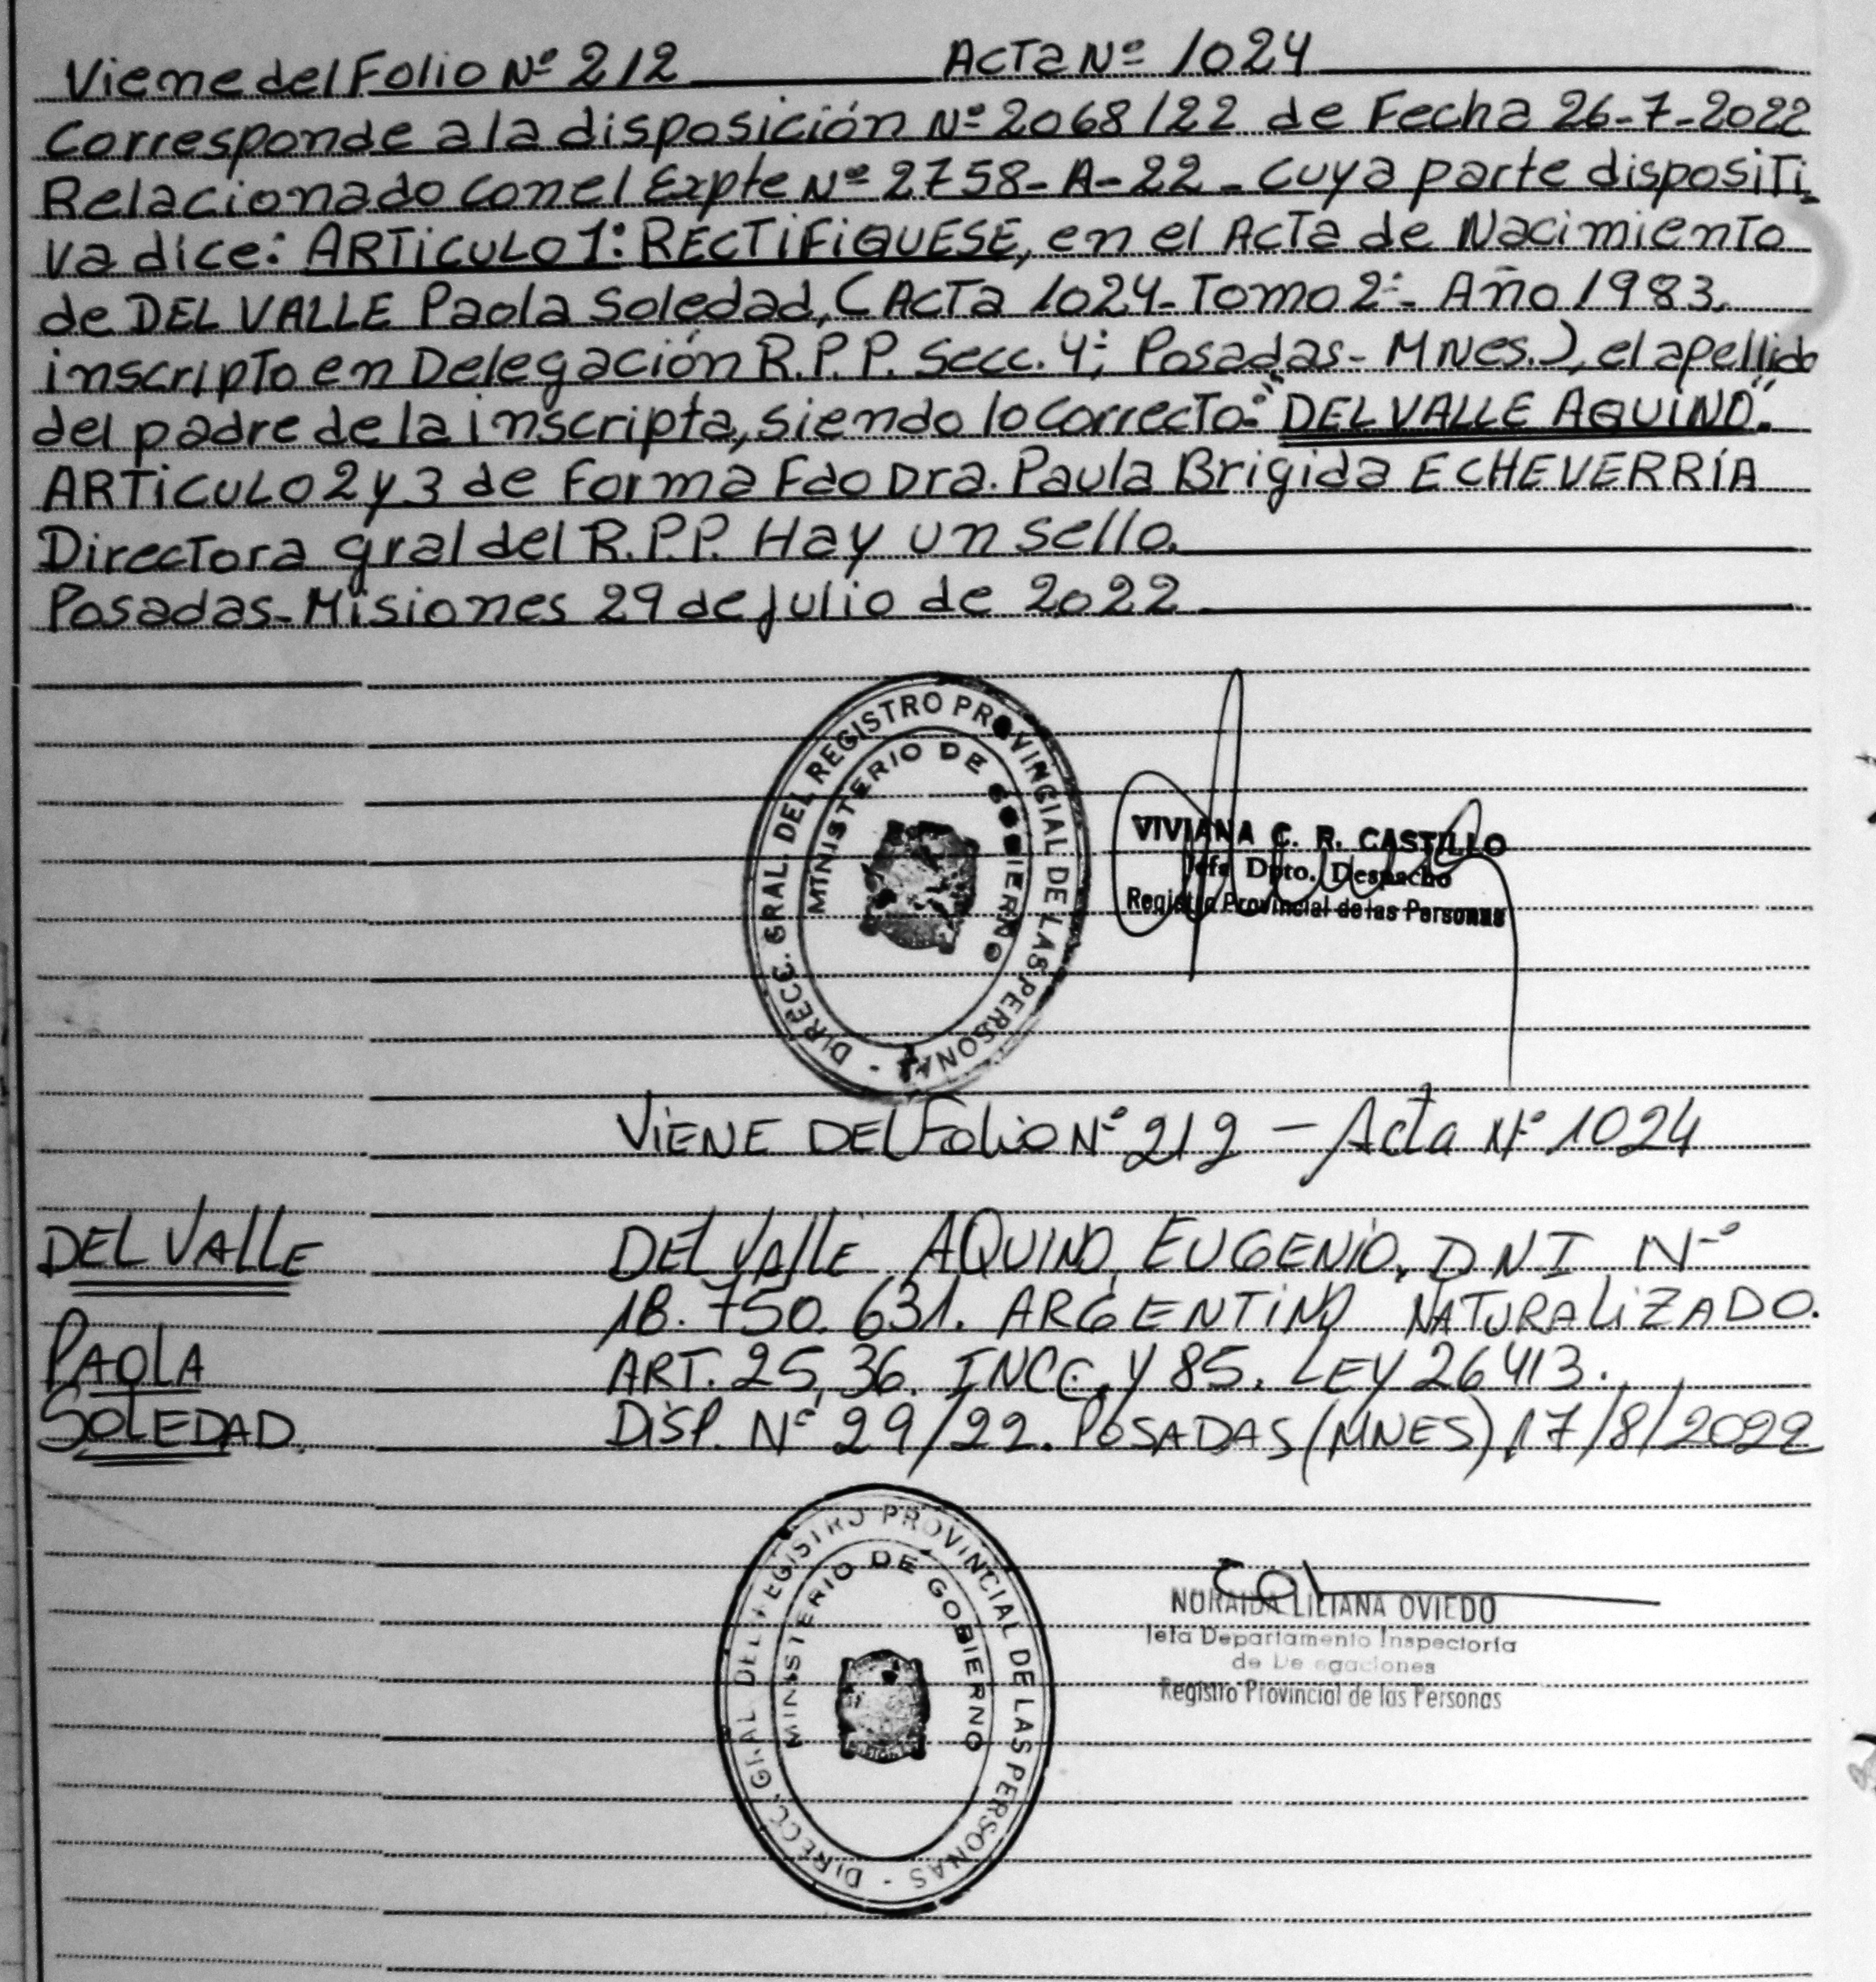 Viene del Folio Nº 212 Acta Nº 1024
Corresponde a la disposición Nº 2068/22 de Fecha 26-7-2022
Relacionado con el Expte Nº 2758-A-22- cuya parte dispositi-
va dice: ARTiCULO 1: RECTiFiQUESE, en el Acta de Nacimiento
de DEL VALLE Paola Soledad, (Acta 1024- Tomo 2º- Año 1983.
inscripto en Delegación R.P.P. Secc. 4º; Posadas- MNes.), el apellido
del padre de la inscripta, siendo lo correcto: "DEL VALLE AQUiNO".
ARTiCULO 2 y 3 de Forma Fdo Dra. Paula Brigida ECHEVERRÍA
Directora gral del R.P.P. Hay un sello.
Posadas-Misiones 29 de julio de 2022
DIRECC. GRAL. DEL REGISTRO PROVINCIAL DE LAS PERSONAS
MINISTERIO DE GOBIERNO
VIVIANA C. R. CASTILLO
Jefa Dpto. Despacho
Registro Provincial de las Personas
ViENE DEL Folio Nº 212 - Acta Nº 1024
DEL VALLE
PAOLA
SOLEDAD.
DEL VALLE AQUINO, EUGENiO. D N I Nº
18.750.631. ARGENTiNO NATURALiZADO.
ART. 25, 36. INC C. y 85. LEY 26413.
DiSP. Nº 29/22. POSADAS (MNES) 17/8/2022
DIRECC. GRAL. DEL REGISTRO PROVINCIAL DE LAS PERSONAS
MINISTERIO DE GOBIERNO
NORAIDA LILIANA OVIEDO
Jefa Departamento Inspectoría
de Delegaciones
Registro Provincial de las Personas